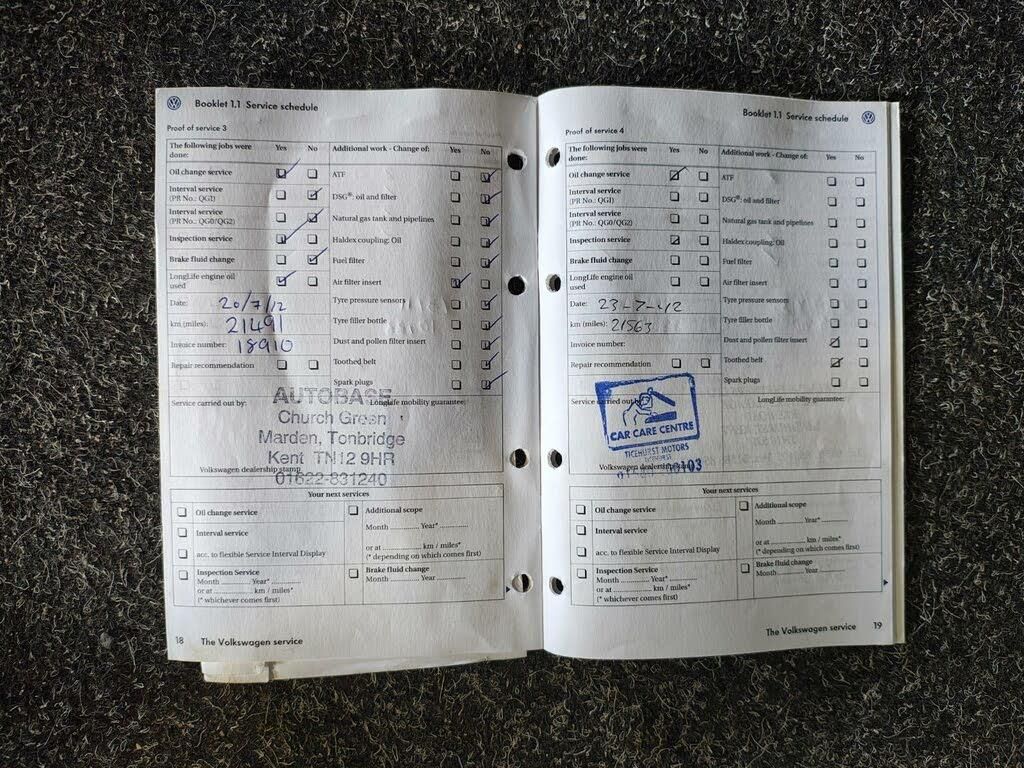 Booklet 1.1 Service schedule
Proof of service 3
The following jobs were done: Yes No Additional work - Change of: Yes No
Oil change service ATF
Interval service (PR No.: QGI) DSG®: oil and filter
Interval service (PR No.: QG0/QG2) Natural gas tank and pipelines
Inspection service Haldex coupling: Oil
Brake fluid change Fuel filter
LongLife engine oil used Air filter insert
Date: 20/7/12 Tyre pressure sensors
km (miles): 21491 Tyre filler bottle
Invoice number: 18910 Dust and pollen filter insert
Repair recommendation Toothed belt
Spark plugs
Service carried out by: LongLife mobility guarantee:
AUTOBASE
Church Green
Marden, Tonbridge
Kent TN12 9HR
01622-831240
Volkswagen dealership stamp
Your next services
Oil change service Additional scope
Interval service Month Year*
acc. to flexible Service Interval Display or at km / miles*
(* depending on which comes first)
Inspection Service Brake fluid change
Month Year* Month Year*
or at km / miles*
(* whichever comes first)
18 The Volkswagen service
Booklet 1.1 Service schedule
Proof of service 4
The following jobs were done: Yes No Additional work - Change of: Yes No
Oil change service ATF
Interval service (PR No.: QGI) DSG®: oil and filter
Interval service (PR No.: QG0/QG2) Natural gas tank and pipelines
Inspection service Haldex coupling: Oil
Brake fluid change Fuel filter
LongLife engine oil used Air filter insert
Date: Tyre pressure sensors
km (miles): 21563 Tyre filler bottle
Invoice number: Dust and pollen filter insert
Repair recommendation Toothed belt
Spark plugs
Service carried out by: LongLife mobility guarantee:
CAR CARE CENTRE
TICEHURST MOTORS
Volkswagen dealership
Your next services
Oil change service Additional scope
Interval service Month Year*
acc. to flexible Service Interval Display or at km / miles*
(* depending on which comes first)
Inspection Service Brake fluid change
Month Year* Month Year*
or at km / miles*
(* whichever comes first)
The Volkswagen service 19